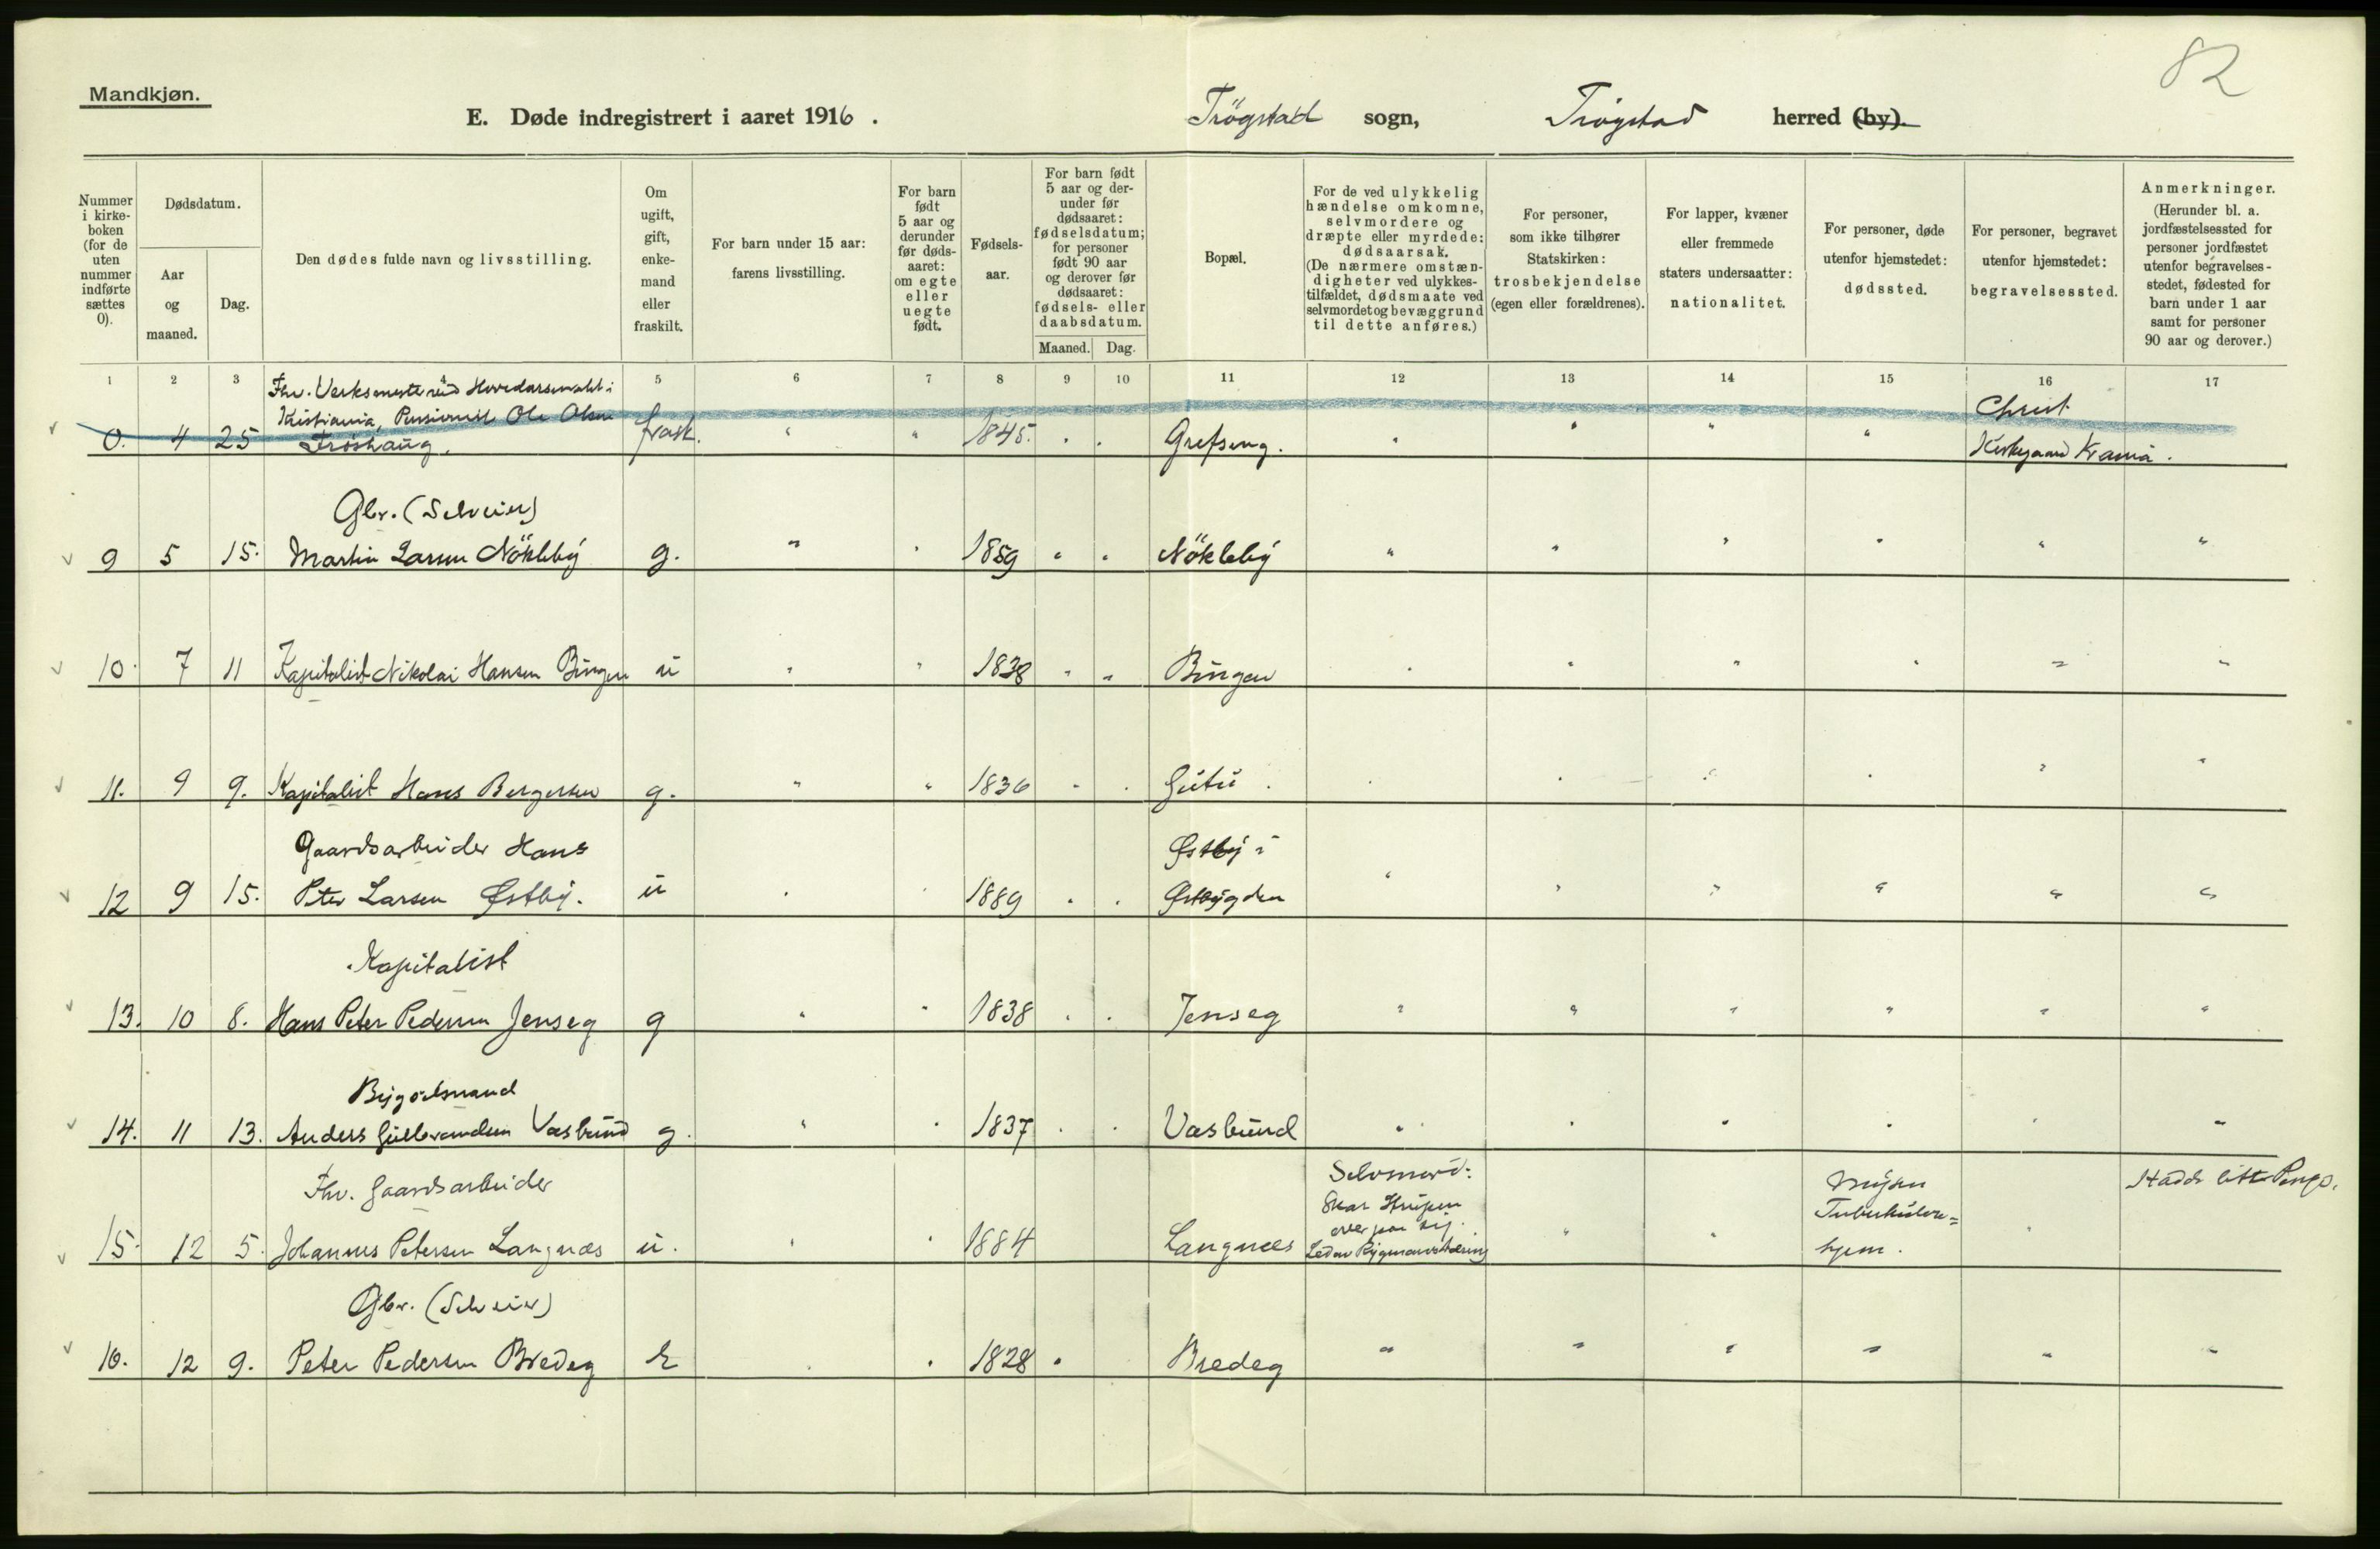 82
Mandkjøn.
E. Døde indregistrert i aaret 1916. Trögstad sogn, Trögstad herred (by).
Nummer i kirke-boken (for de uten nummer indførte sættes 0).
Dødsdatum.
Aar og maaned.
Dag.
Den dødes fulde navn og livsstilling.
Om ugift, gift, enke-mand eller fraskilt.
For barn under 15 aar: farens livsstilling.
For barn født 5 aar og derunder før døds-aaret: om egte eller uegte født.
Fødsels-aar.
For barn født 5 aar og der-under før dødsaaret: fødselsdatum; for personer født 90 aar og derover før dødsaaret: fødsels- eller daabsdatum.
Maaned. Dag.
Bopæl.
For de ved ulykkelig hændelse omkomne, selvmordere og dræpte eller myrdede: dødsaarsak. (De nærmere omstæn-digheter ved ulykkes-tilfældet, dødsmaate ved selvmordet og bevæggrund til dette anføres.)
For personer, som ikke tilhører Statskirken: trosbekjendelse (egen eller forældrenes).
For lapper, kvæner eller fremmede staters undersaatter: nationalitet.
For personer, døde utenfor hjemstedet: dødssted.
For personer, begravet utenfor hjemstedet: begravelsessted.
Anmerkninger. (Herunder bl. a. jordfæstelsessted for personer jordfæstet utenfor begravelses-stedet, fødested for barn under 1 aar samt for personer 90 aar og derover.)
1 2 3 4 5 6 7 8 9 10 11 12 13 14 15 16 17
Fhv. Verksmester ved Hovedarsenalet i
Kristiania, Pensionist Ole Olsen Christ
0. 4 25 Fröshaug. frask. " " 1845. " " Grefseng. " " " " Kirkegaard Krania.
Gbr. (Selveier)
9 5 15. Martin Larsen Nökleby g. " " 1859 " " Nökleby " " " " " "
10. 7 11 Kapitalist Nikolai Hansen Bingen u " " 1838 " " Bingen " " " " " "
11. 9 9. Kapitalist Hans Bergersen g. " " 1836 " " Gutu " " " " " "
Gaardsarbeider Hans Østby i
12 9 15. Peter Larsen Østby. u " " 1889 " " Østbygden " " " " " "
Kapitalist
13. 10 8. Hans Peter Pedersen Jenseg g " " 1838 " " Jenseg " " " " " "
Bygselmand
14. 11 13. Anders Gulbrandsen Vasbund g. " " 1837 " " Vasbund " " " " " "
Fhv. Gaardsarbeider Selvmord: Mysen
Skar Strupen Tuberkulose=
over paa sig.
15. 12 5. Johannes Petersen Langnæs u. " " 1884 Langnæs Led av Rygmarvstæring " " hjem. "
Gbr. (Selveier)
16. 12 9. Peter Pedersen Bredeg E " 1828 " Bredeg " " " " " "